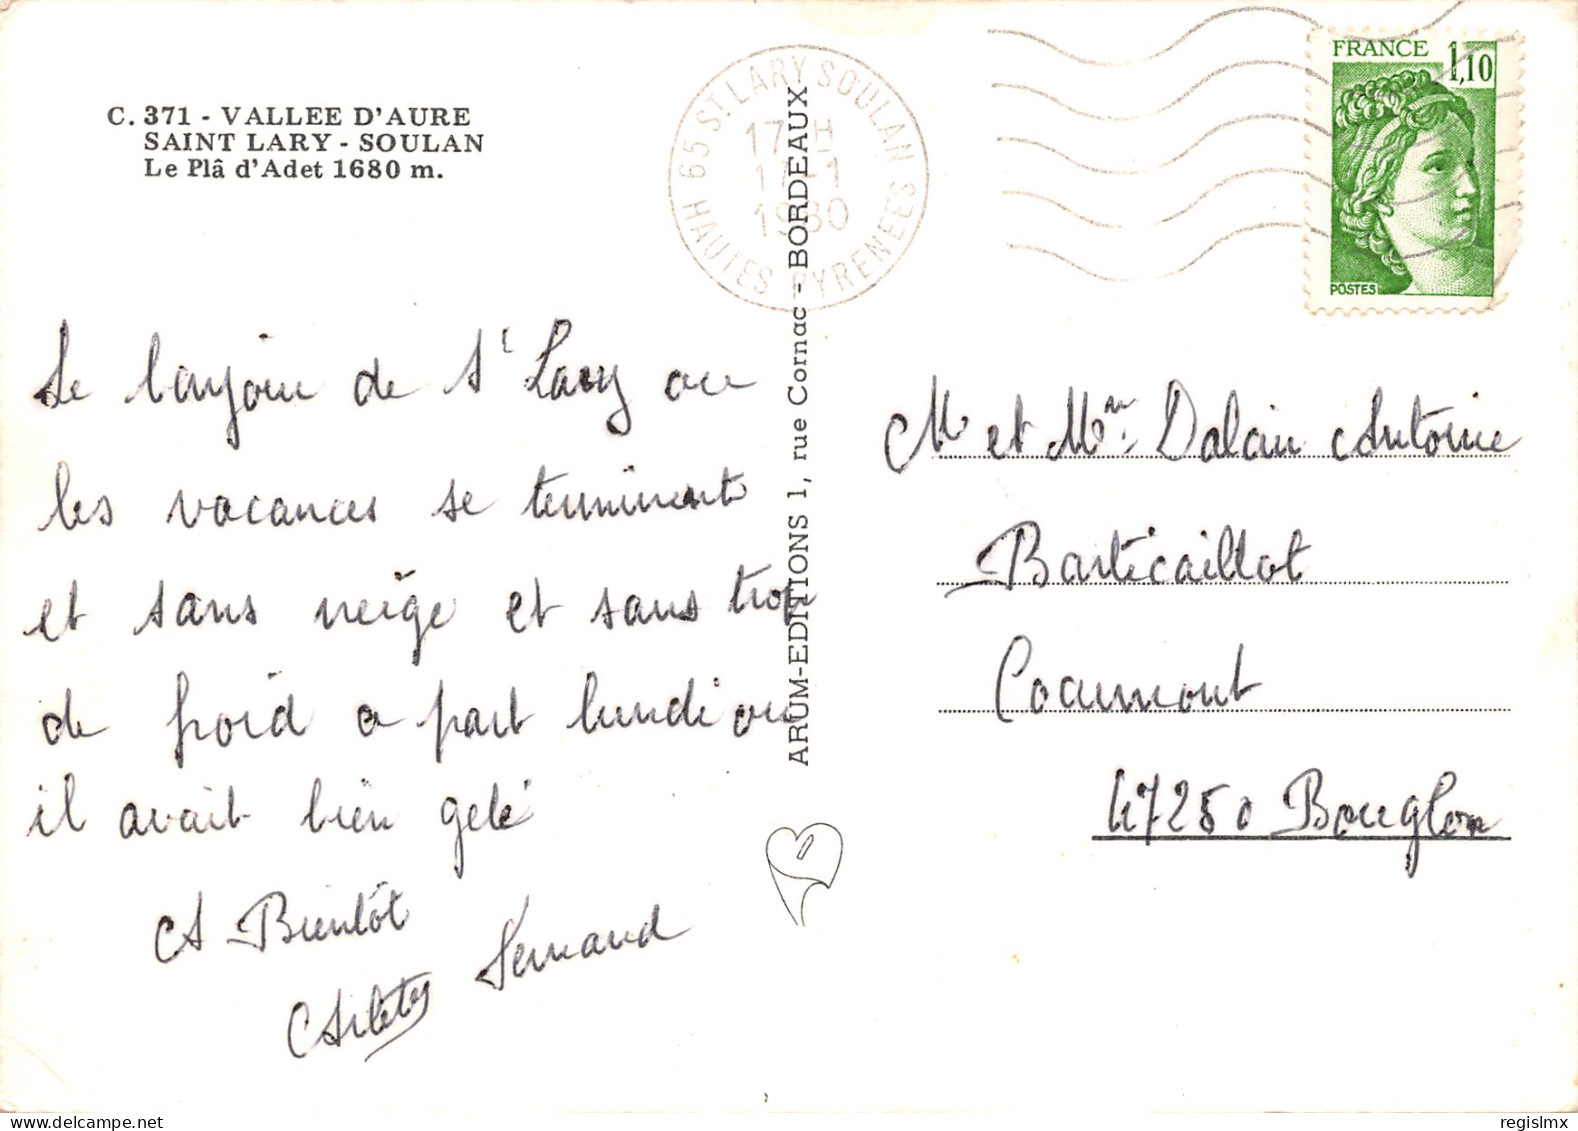 C. 371 - VALLEE D'AURE
SAINT LARY - SOULAN
Le Plâ d'Adet 1680 m.
65 ST LARY SOULAN
17 H
17-1
1980
HAUTES PYRENEES
FRANCE 1,10
POSTES
Le bonjour de St Lary ou
les vacances se terminent
et sans neige et sans trop
de froid a part lundi ou
il avait bien gelé
A Bientôt
Arlette Fernand
ARUM-EDITIONS 1, rue Cornac - BORDEAUX
M et Mme Dalain Antoine
Barticaillot
Cocumont
47250 Bouglon
regislmx